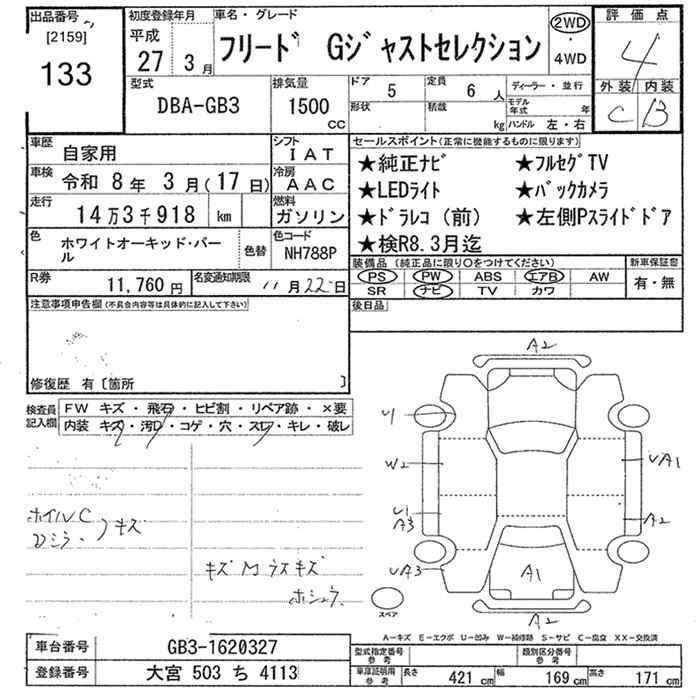 出品番号
[2159]
133
初度登録年月
平成
27 3月
車名・グレード
フリード Gジャストセレクション
2WD
4WD
評価点
4
外装 内装
C B
型式
DBA-GB3
排気量
1500
CC
ドア 5
定員 6人
ディーラー・並行
形状
積載 kg
モデル年式 年
ハンドル 左・右
車歴 自家用
シフト IAT
車検 令和 8年 3月(17日)
冷房 AAC
走行 14万3千918 km
燃料 ガソリン
色 ホワイトオーキッド・パール
色替
色コード NH788P
R券 11,760円
名変通知期限 11月22日
セールスポイント(正常に機能するものに限ります)
★純正ナビ ★フルセグTV
★LEDライト ★バックカメラ
★ドラレコ(前) ★左側Pスライドドア
★検R8.3月迄
装備品(純正品に限り○をつけてください)
新車保証書
PS PW ABS エアB AW
SR ナビ TV カワ
有・無
後日品
注意事項申告欄(不具合内容等は具体的に記入して下さい)
修復歴 有〔箇所 〕
検査員記入欄
FW キズ・飛石・ヒビ割・リペア跡・×要
内装 キズ・汚れ・コゲ・穴・スレ・キレ・破レ
ホイルC
Dミラー キズ
ホシュウ
A2
U
W2
U1
A3
UA3
UA1
A2
A1
A2
スペア
A-キズ E-エクボ U-凹み W-補修跡 S-サビ C-腐食 XX-交換済
車台番号 GB3-1620327
登録番号 大宮 503 ち 4113
型式指定番号 参考
類別区分番号 参考
車庫証明用 参考
長さ 421cm 幅 169cm 高さ 171cm